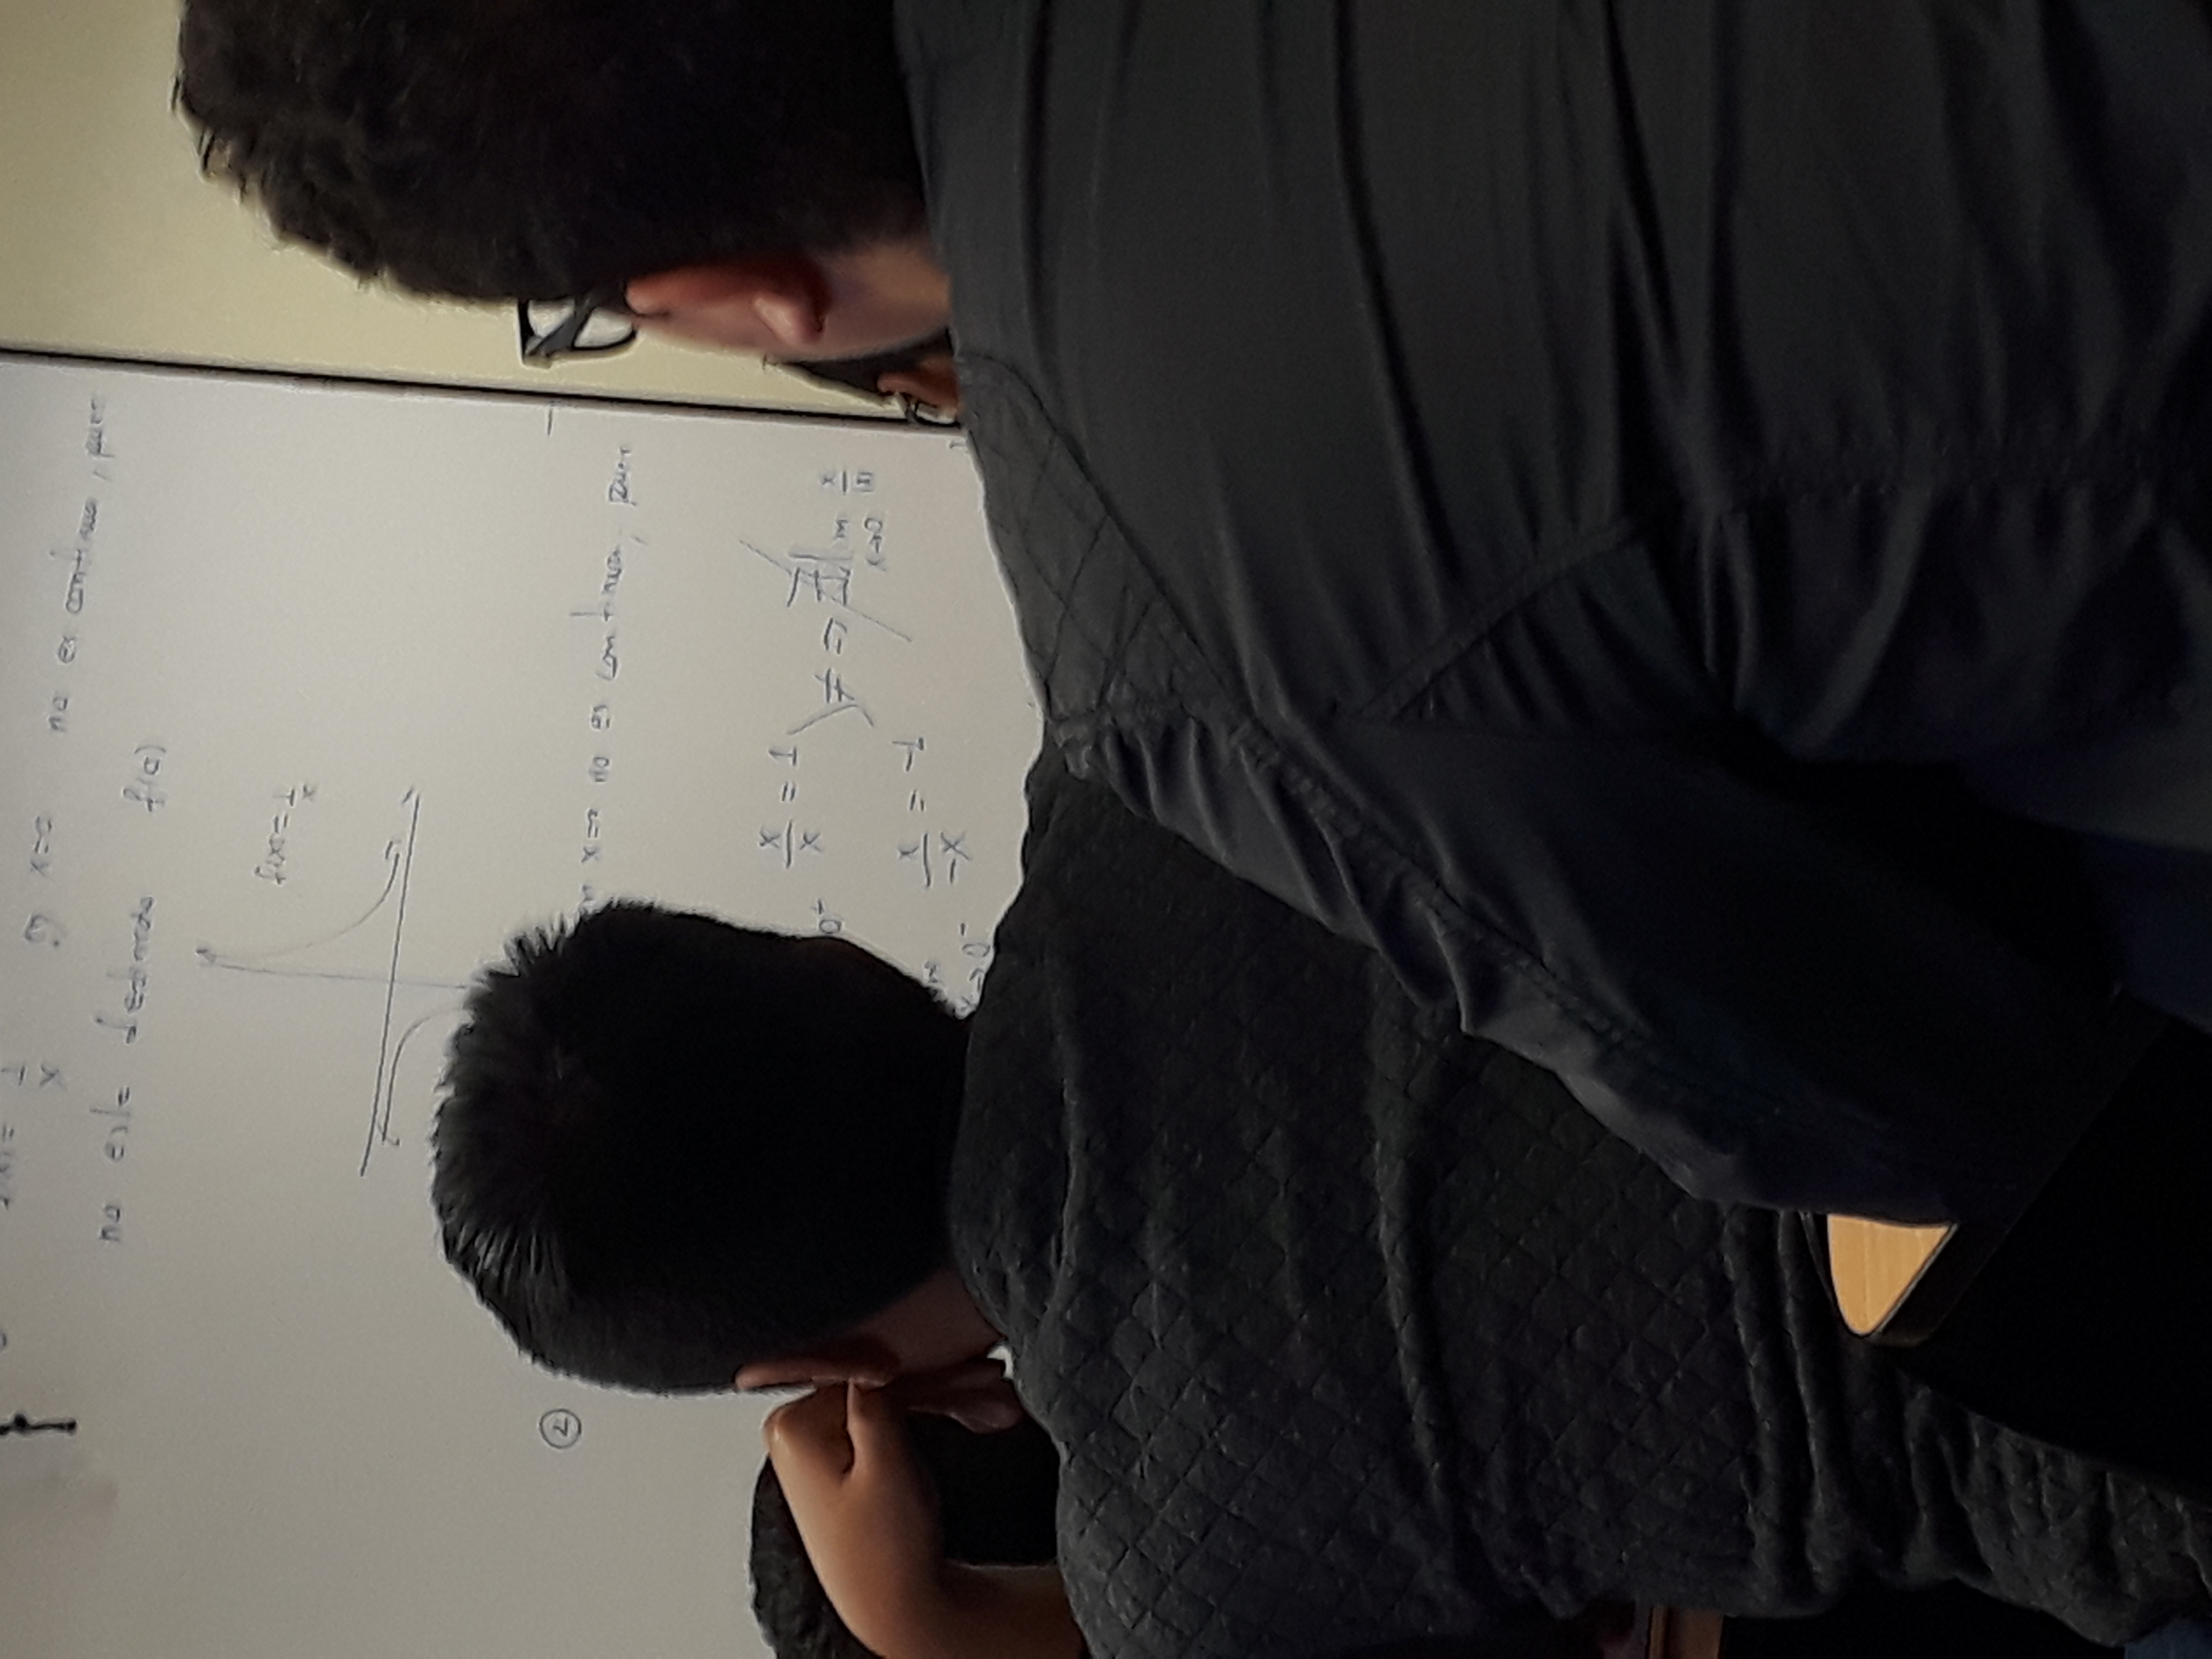 f(x) = 1/x en x=0 no es continua, pues
no está definido f(0)
f(x) = 1/x
②
en x=0 no es continua, pues
0⁺ x/x = 1
≠ ⇒ ∄ lim x→0 x/|x|
x→0⁻ x/-x = -1